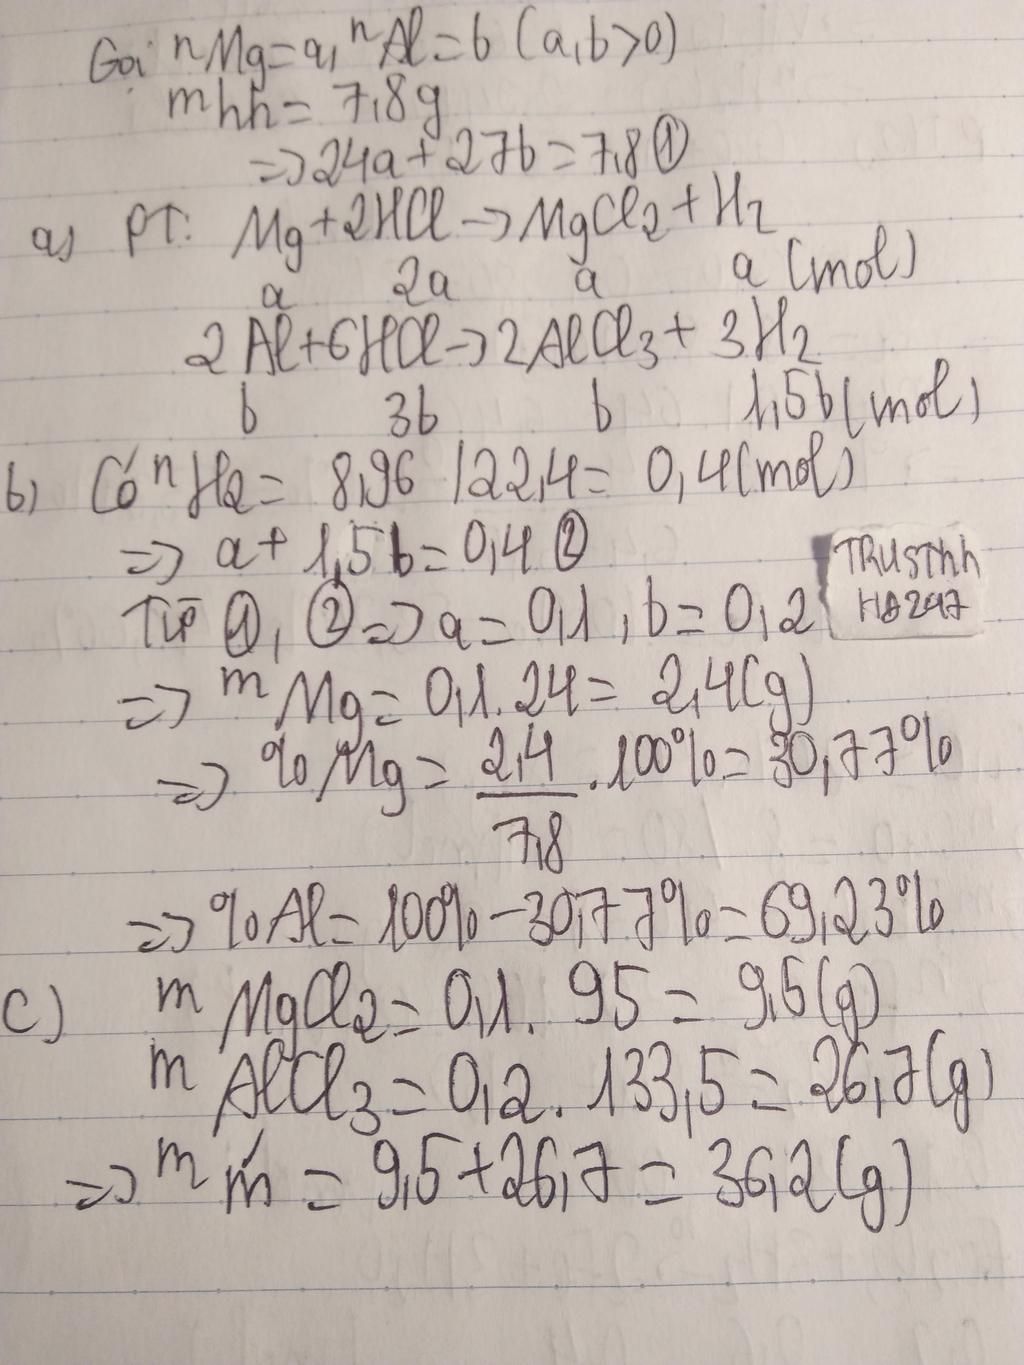 Gọi nMg = a, nAl = b (a,b>0)
mhh = 7,8g
=> 24a + 27b = 7,8 ①
a) PT: Mg + 2HCl -> MgCl2 + H2
a 2a a a (mol)
2Al + 6HCl -> 2AlCl3 + 3H2
b 3b b 1,5b (mol)
b) Có nH2 = 8,96 / 22,4 = 0,4 (mol)
=> a + 1,5b = 0,4 ②
Từ ①, ② => a = 0,1, b = 0,2
TRUSThh
H8247
=> mMg = 0,1.24 = 2,4(g)
=> %Mg = 2,4/7,8 .100% = 30,77%
=> %Al = 100% - 30,77% = 69,23%
c) mMgCl2 = 0,1. 95 = 9,5(g)
mAlCl3 = 0,2. 133,5 = 26,7(g)
=> m ḿ = 9,5 + 26,7 = 36,2(g)